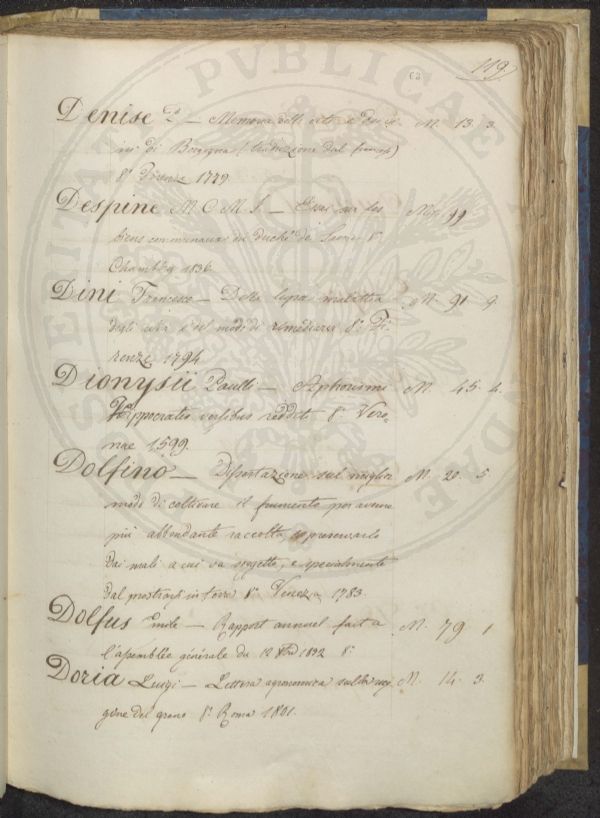 119
63
Denise P. — Memoria dell' arte
M. 13. 3.
di Borgogna (traduzione dal francese)
8° Firenze 1779
Despine M. C. M. J. — Essai sur les
M. 99
biens communaux du duché de Savoie 8°
Chambéry 1836
Dini Francesco — Della lupa malattia
M. 91. 9.
degli ulivi e del modo di rimediarvi 8° Fi-
renze 1794
Dionysii Paulli — Aphorismi
M. 45. 4.
Hippocratis versibus redditi 8° Vero-
nae 1599.
Dolfino — Dissertazione sul miglior
M. 20. 5
modo di coltivare il frumento per averne
più abbondante raccolta, preservarlo
dai mali a cui va soggetto, e specialmente
dal 8° Venezia 1783.
Dolfus Emile — Rapport annuel fait a
M. 79. 1
l'assemblée générale du 12
Doria Luigi — Lettera agronomica sulla
M. 14. 3.
gine del grano 8° Roma 1801.
PVBLICAE